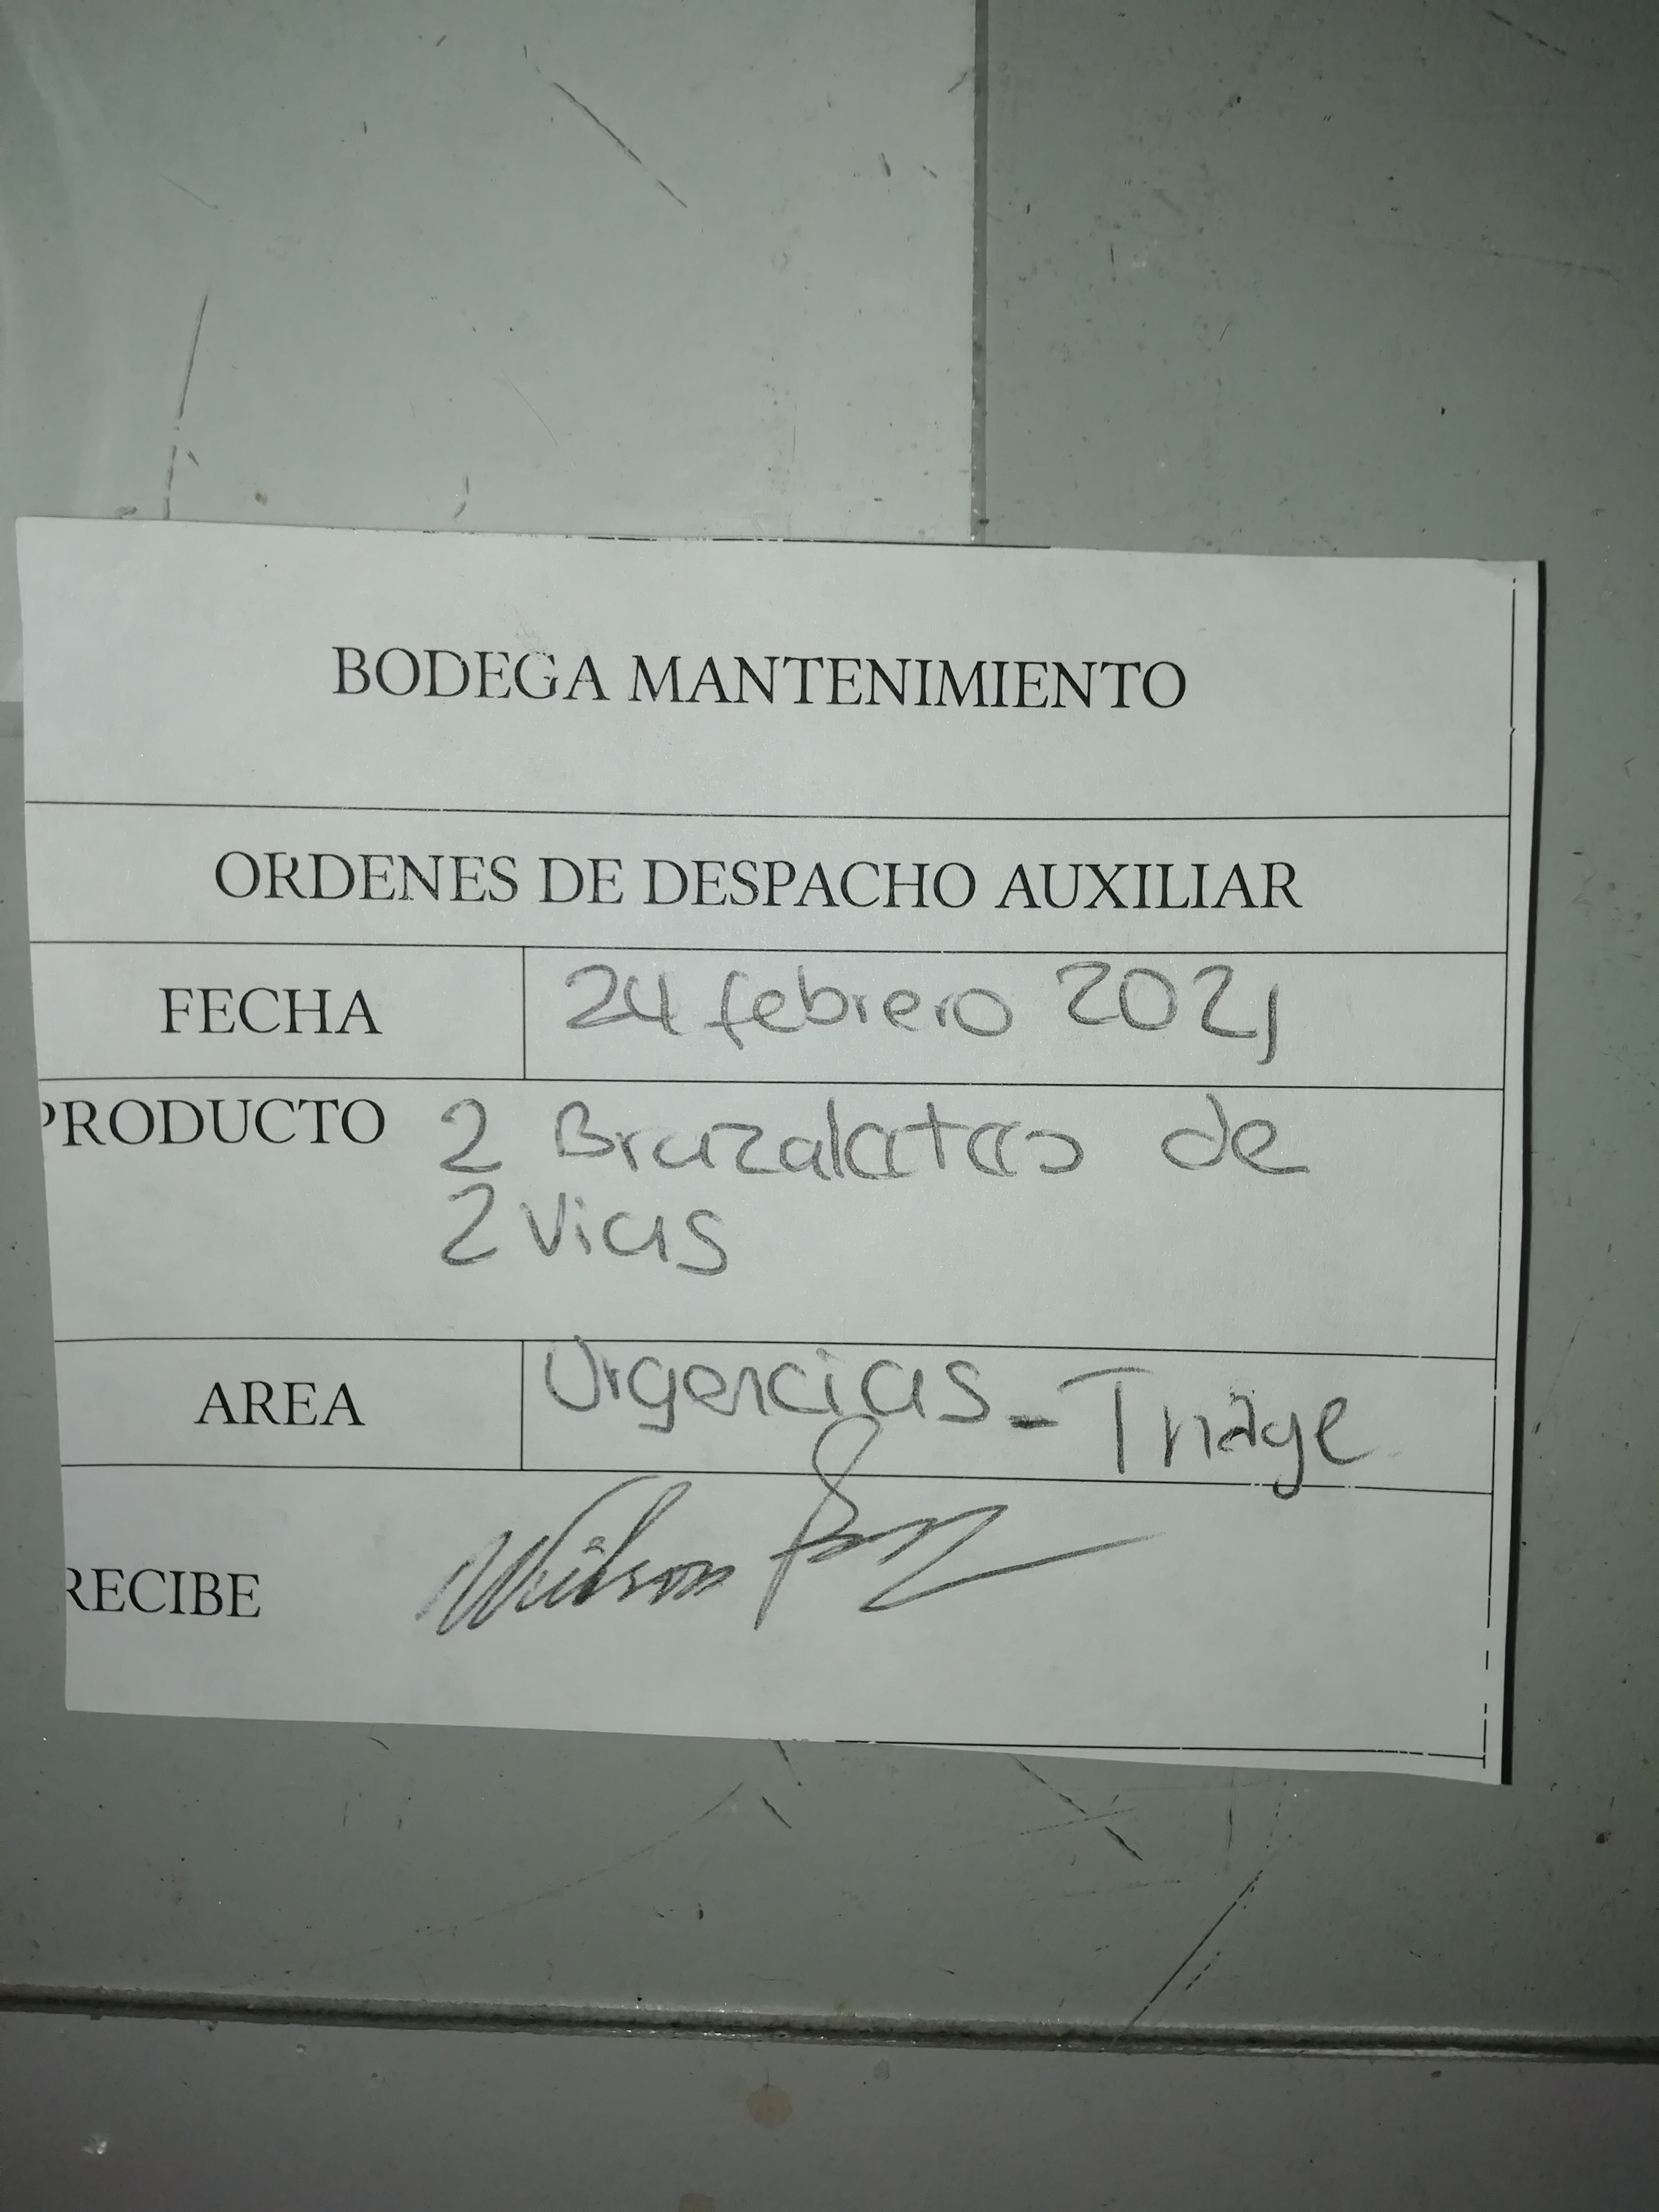 BODEGA MANTENIMIENTO
ORDENES DE DESPACHO AUXILIAR
FECHA 24 febrero 2021
PRODUCTO 2 Brazalatas de
2 Vias
AREA Urgencias - Triage
RECIBE Wilson